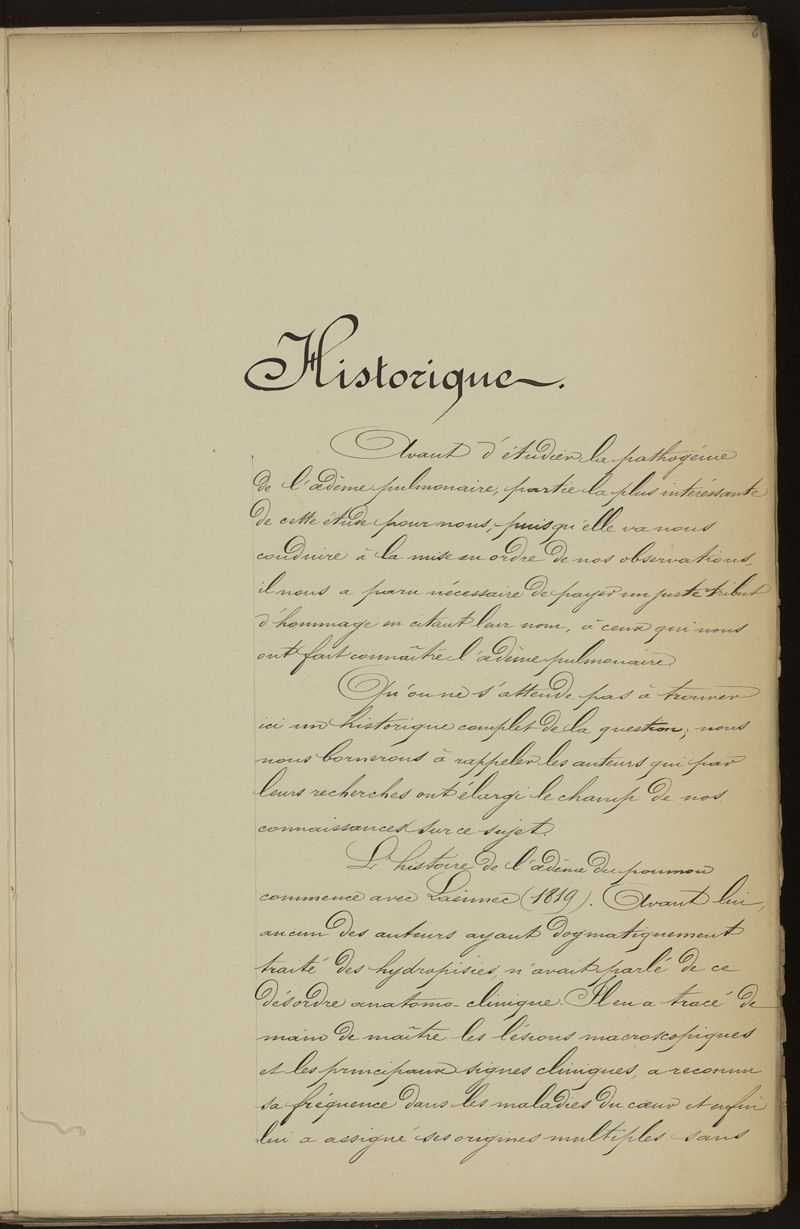 6
Historique.
Avant d'étudier la pathogénie
de l'œdème pulmonaire, partie la plus intéressante
de cette étude pour nous, puisqu'elle va nous
conduire à la mise en ordre de nos observations,
il nous a paru nécessaire de payer un juste tribut
d'hommage en citant leur nom, à ceux qui nous
ont fait connaître l'œdème pulmonaire.
Qu'on ne s'attende pas à trouver
ici un historique complet de la question; nous
nous bornerons à rappeler les auteurs qui par
leurs recherches ont élargi le champ de nos
connaissances sur ce sujet.
L'histoire de l'œdème du poumon
commence avec Laënnec (1819). Avant lui,
aucun des auteurs ayant dogmatiquement
traité des hydropisies, n'avait parlé de ce
désordre anatomo-clinique. Il en a tracé de
main de maître les lésions macroscopiques
et les principaux signes cliniques, a reconnu
sa fréquence dans les maladies du cœur et enfin
lui a assigné ses origines multiples sans